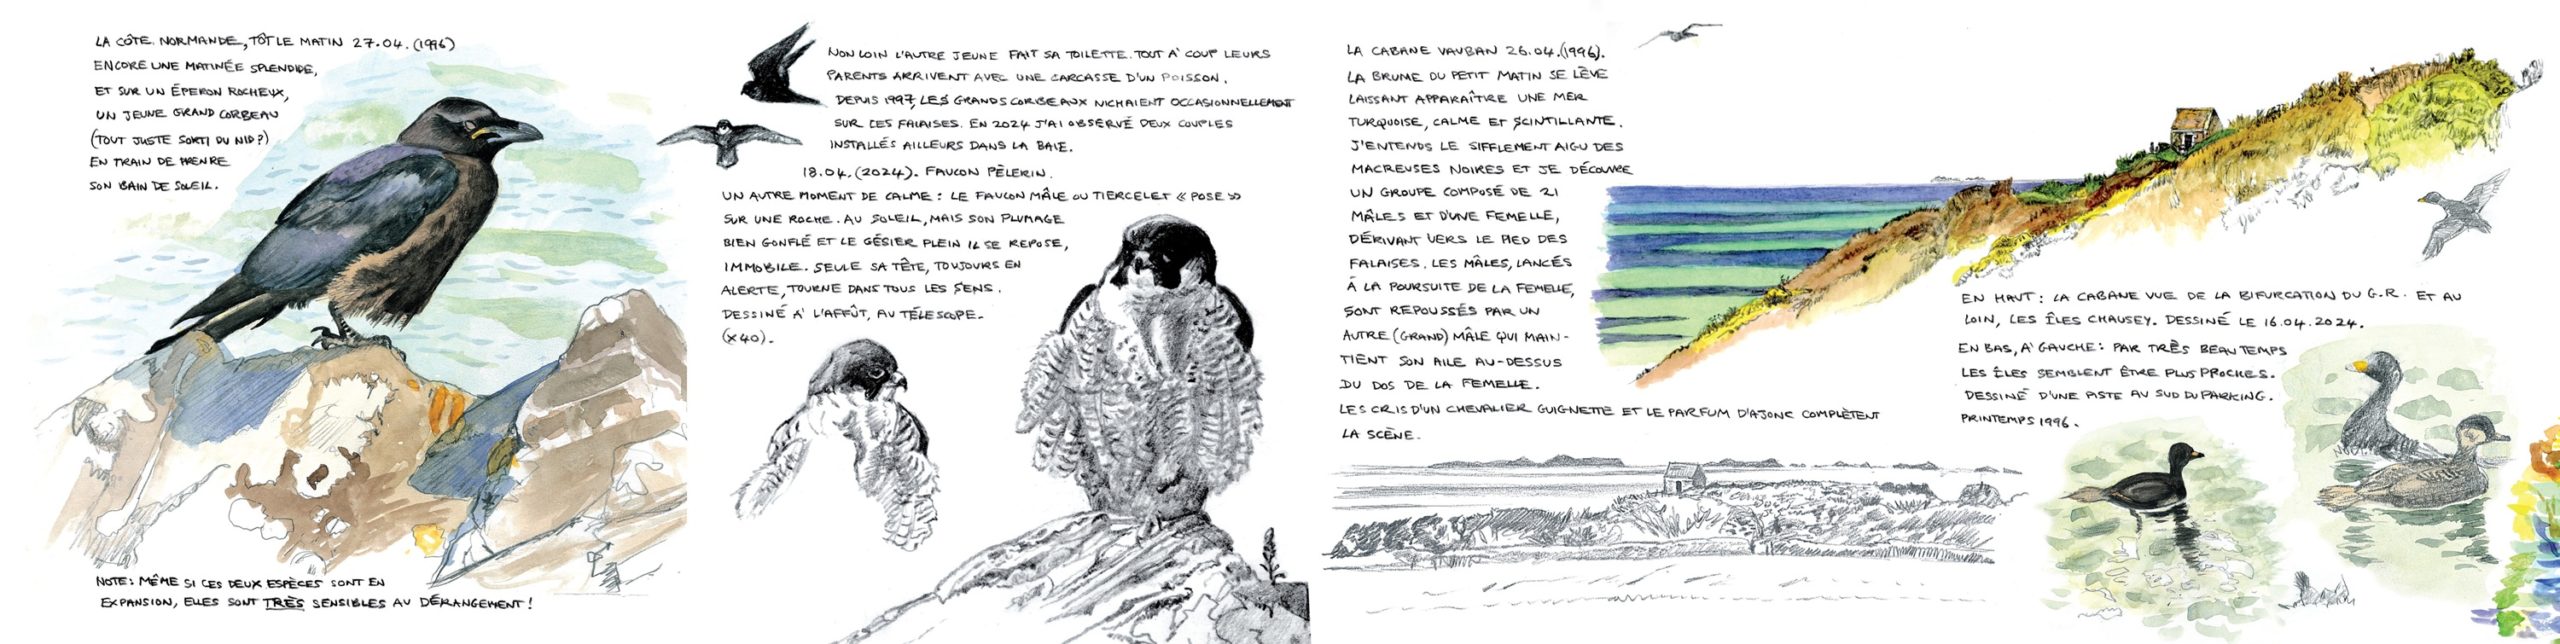 LA CÔTE NORMANDE, TÔT LE MATIN 27.04.(1996)
ENCORE UNE MATINÉE SPLENDIDE,
ET SUR UN ÉPERON ROCHEUX,
UN JEUNE GRAND CORBEAU
(TOUT JUSTE SORTI DU NID?)
EN TRAIN DE PRENRE
SON BAIN DE SOLEIL.
NOTE: MÊME SI CES DEUX ESPÈCES SONT EN
EXPANSION, ELLES SONT TRÈS SENSIBLES AU DÉRANGEMENT!
NON LOIN L'AUTRE JEUNE FAIT SA TOILETTE. TOUT À COUP LEURS
PARENTS ARRIVENT AVEC UNE CARCASSE D'UN POISSON.
DEPUIS 1997, LES GRANDS CORBEAUX NICHAIENT OCCASIONNELLEMENT
SUR CES FALAISES. EN 2024 J'AI OBSERVÉ DEUX COUPLES
INSTALLÉS AILLEURS DANS LA BAIE.
18.04.(2024). FAUCON PÈLERIN.
UN AUTRE MOMENT DE CALME: LE FAUCON MÂLE OU TIERCELET « POSE »
SUR UNE ROCHE. AU SOLEIL, MAIS SON PLUMAGE
BIEN GONFLÉ ET LE GÉSIER PLEIN IL SE REPOSE,
IMMOBILE. SEULE SA TÊTE, TOUJOURS EN
ALERTE, TOURNE DANS TOUS LES SENS.
DESSINÉ À L'AFFÛT, AU TÉLESCOPE.
(X40).
LA CABANE VAUBAN 26.04.(1996).
LA BRUME DU PETIT MATIN SE LÈVE
LAISSANT APPARAÎTRE UNE MER
TURQUOISE, CALME ET SCINTILLANTE.
J'ENTENDS LE SIFFLEMENT AIGU DES
MACREUSES NOIRES ET JE DÉCOUVRE
UN GROUPE COMPOSÉ DE 21
MÂLES ET D'UNE FEMELLE,
DÉRIVANT VERS LE PIED DES
FALAISES. LES MÂLES, LANCÉS
À LA POURSUITE DE LA FEMELLE,
SONT REPOUSSÉS PAR UN
AUTRE (GRAND) MÂLE QUI MAIN-
TIENT SON AILE AU-DESSUS
DU DOS DE LA FEMELLE.
LES CRIS D'UN CHEVALIER GUIGNETTE ET LE PARFUM D'AJONC COMPLÈTENT
LA SCÈNE.
EN HAUT: LA CABANE VUE DE LA BIFURCATION DU G.R. ET AU
LOIN, LES ÎLES CHAUSEY. DESSINÉ LE 16.04.2024.
EN BAS, À GAUCHE: PAR TRÈS BEAU TEMPS
LES ÎLES SEMBLENT ÊTRE PLUS PROCHES.
DESSINÉ D'UNE PISTE AU SUD DU PARKING.
PRINTEMPS 1996.